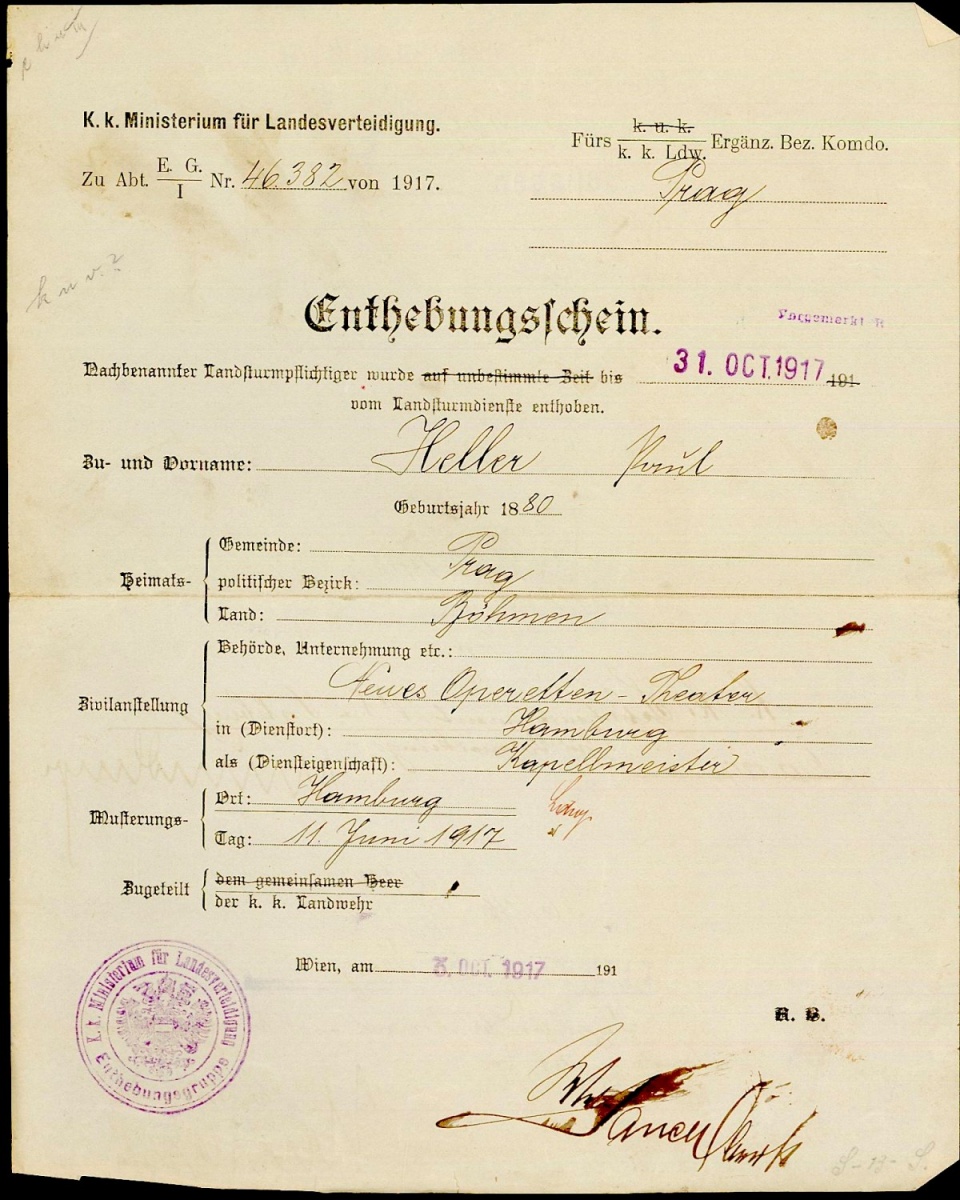 K. k. Ministerium für Landesverteidigung.
Zu Abt. E. G. / I Nr. 46.382 von 1917.
Fürs k. u. k. / k. k. Ldw. Ergänz. Bez. Komdo.
Prag
k u v. ?
Enthebungsschein.
Vorgemerkt
Nachbenannter Landsturmpflichtiger wurde auf unbestimmte Zeit bis 31. OCT. 1917 191
vom Landsturmdienste enthoben.
Zu- und Vorname: Heller Paul
Geburtsjahr 1880
Heimats-
Gemeinde:
Prag
politischer Bezirk:
Land: Böhmen
Zivilanstellung
Behörde, Unternehmung etc.:
Neues Operetten-Theater
in (Dienstort): Hamburg
als (Diensteigenschaft): Kapellmeister
Musterungs-
Ort: Hamburg
Tag: 11. Juni 1917
Zugeteilt
dem gemeinsamen Heer
der k. k. Landwehr
Wien, am 5. OCT. 1917 191
K. k. Ministerium für Landesverteidigung
Enthebungsgruppe